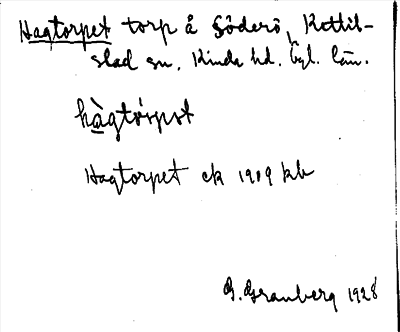 Hagtorpet torp å Söderö, Kettil-
stad sn. Kinda hd. Ögl. län.
hàgtórpət
Hagtorpet ek 1909 kb
G. Granberg 1928